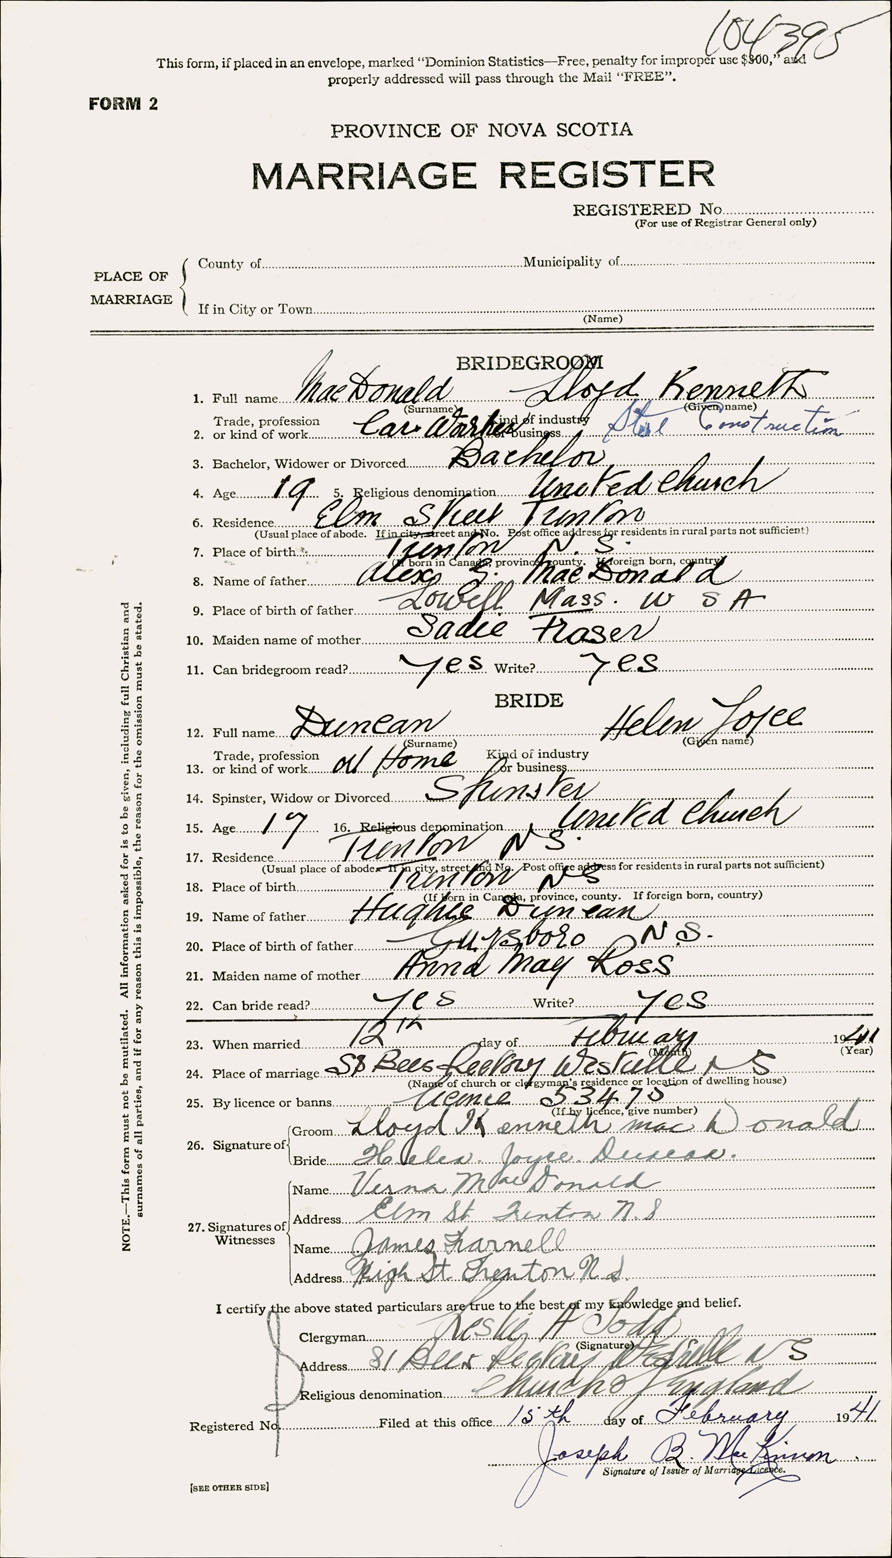 104395
This form, if placed in an envelope, marked "Dominion Statistics—Free, penalty for improper use $300," and
properly addressed will pass through the Mail "FREE".
FORM 2
PROVINCE OF NOVA SCOTIA
MARRIAGE REGISTER
REGISTERED No.
(For use of Registrar General only)
PLACE OF MARRIAGE
County of Municipality of
If in City or Town
(Name)
BRIDEGROOM
1. Full name MacDonald Lloyd Kenneth
(Surname) (Given name)
2. Trade, profession or kind of work Car Worker Kind of industry or business Steel Construction
3. Bachelor, Widower or Divorced Bachelor
4. Age 19 5. Religious denomination United Church
6. Residence Elm Street Trenton
(Usual place of abode. If in city, street and No. Post office address for residents in rural parts not sufficient)
7. Place of birth Trenton N. S.
(If born in Canada, province, county. If foreign born, country)
8. Name of father Alex S. MacDonald
9. Place of birth of father Lowell Mass. U S A
10. Maiden name of mother Sadie Fraser
11. Can bridegroom read? Yes Write? Yes
BRIDE
12. Full name Duncan Helen Joyce
(Surname) (Given name)
13. Trade, profession or kind of work at Home Kind of industry or business
14. Spinster, Widow or Divorced Spinster
15. Age 17 16. Religious denomination United Church
17. Residence Trenton N S.
(Usual place of abode. If in city, street and No. Post office address for residents in rural parts not sufficient)
18. Place of birth Trenton N S
(If born in Canada, province, county. If foreign born, country)
19. Name of father Hughie Duncan
20. Place of birth of father Guysboro N.S.
21. Maiden name of mother Anna May Ross
22. Can bride read? Yes Write? Yes
23. When married 12th day of February 1941
(Month) (Year)
24. Place of marriage St Bees Rectory Westville N S
(Name of church or clergyman's residence or location of dwelling house)
25. By licence or banns licence 53470
(If by licence, give number)
26. Signature of Groom Lloyd Kenneth mac Donald
Bride Helen. Joyce. Duncan.
27. Signatures of Witnesses
Name Verna MacDonald
Address Elm St Trenton N.S
Name James Farnell
Address High St. Trenton N.S.
I certify the above stated particulars are true to the best of my knowledge and belief.
Clergyman Leslie A Todd
(Signature)
Address St Bees Rectory Westville N S
Religious denomination Church of England
Registered No. Filed at this office 15th day of February 1941
Joseph B. MacKinnon.
Signature of Issuer of Marriage Licence.
[SEE OTHER SIDE]
NOTE.—This form must not be mutilated. All information asked for is to be given, including full Christian and
surnames of all parties, and if for any reason this is impossible, the reason for the omission must be stated.